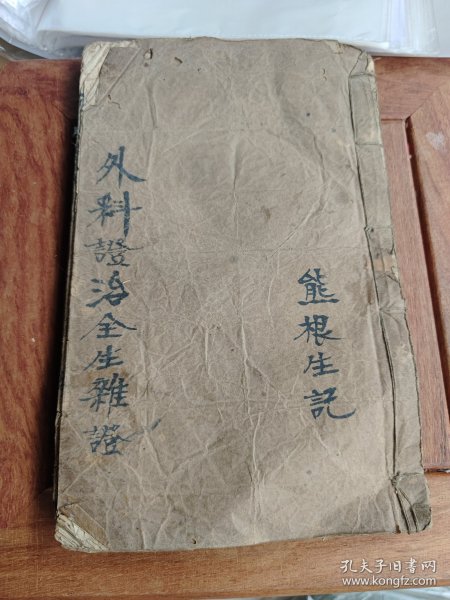 熊根生記
外科證治全生雜證
孔夫子旧书网
www.kongfz.com